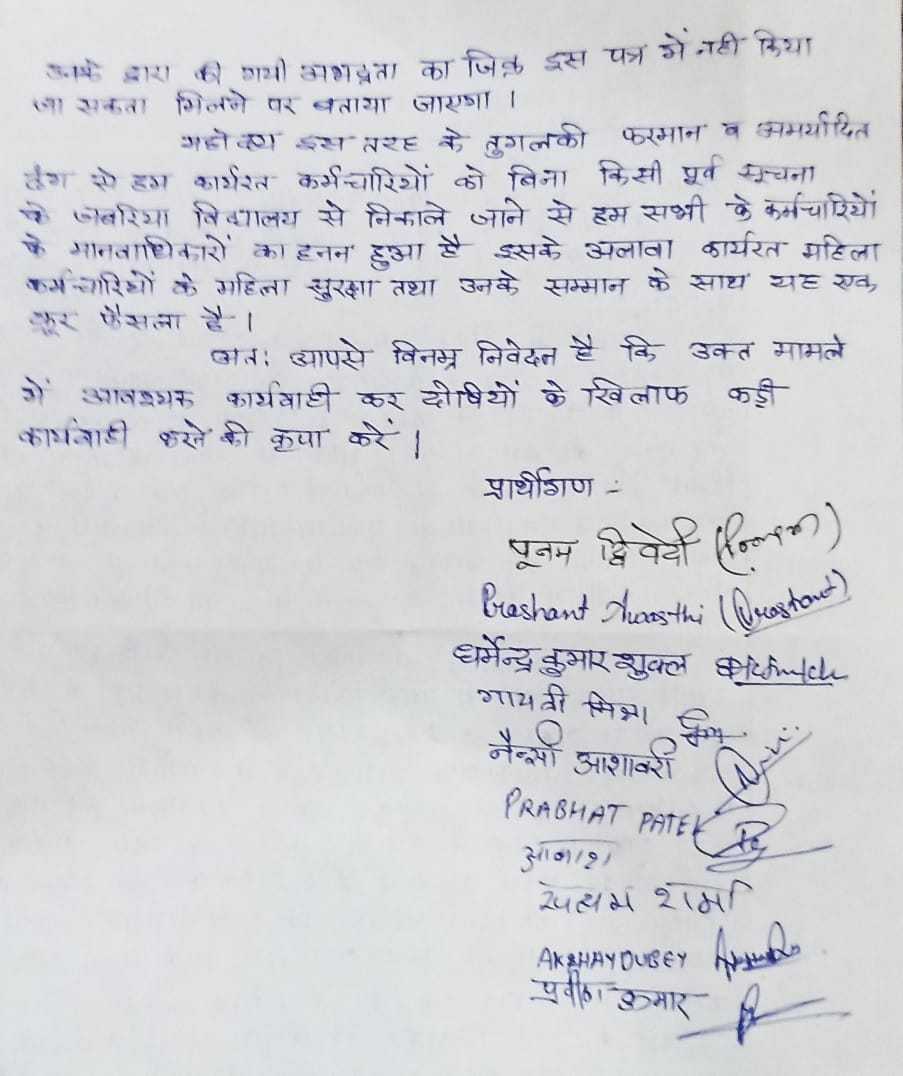 उनके द्वारा की गयी अभद्रता का जिक्र इस पत्र में नही किया
जा सकता मिलने पर बताया जाएगा ।
महोदय इस तरह के तुगलकी फरमान व अमर्यादित
ढंग से हम कार्यरत कर्मचारियों को बिना किसी पूर्व सूचना
के जबरिया विद्यालय से निकाले जाने से हम सभी के कर्मचारियों
के मानवाधिकारों का हनन हुआ है इसके अलावा कार्यरत महिला
कर्मचारियों के महिला सुरक्षा तथा उनके सम्मान के साथ यह एक
क्रूर फैसला है ।
अतः आपसे विनम्र निवेदन है कि उक्त मामले
में आवश्यक कार्यवाही कर दोषियों के खिलाफ कड़ी
कार्यवाही करने की कृपा करें ।
प्रार्थीगण -
पूनम द्विवेदी (Poonam)
Prashant Awasthi (Prashant)
धर्मेन्द्र कुमार शुक्ल
गायत्री मिश्रा
नैन्सी आशावरी
PRABHAT PATEL
आकाश
सत्यम शर्मा
AKSHAY DUBEY
प्रवीण कुमार